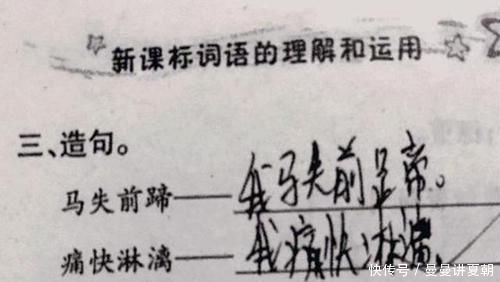 新课标词语的理解和运用
三、造句。
马失前蹄——我马失前蹄。
痛快淋漓——我痛快淋漓
快传号/曼曼讲夏朝